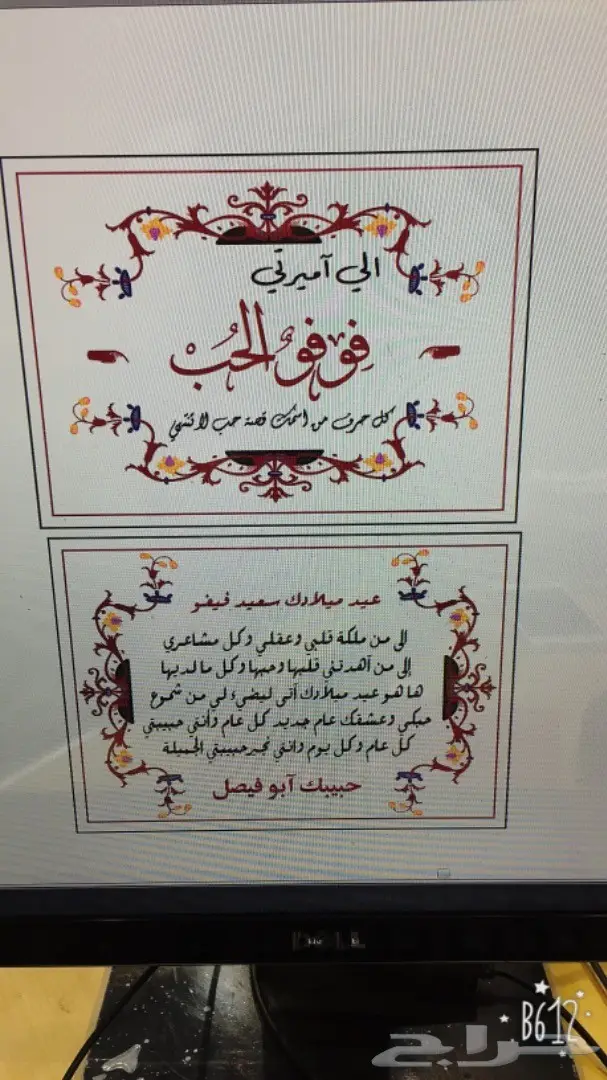 الي آميرتي
فوفو الحب
كل حرف من اسمك قصة حب لا تنتهي
عيد ميلادك سعيد فيفو
إلى من ملكة قلبي وعقلي وكل مشاعري
إلى من أهدتني قلبها وحبها وكل ما لديها
ها هو عيد ميلادك أتى ليضيء لي من شموع
حبكي وعشقك عام جديد كل عام وأنتي حبيبتي
كل عام وكل يوم وانتي بخير حبيبتي الجميلة
حبيبك آبو فيصل
DELL
B612
حراج